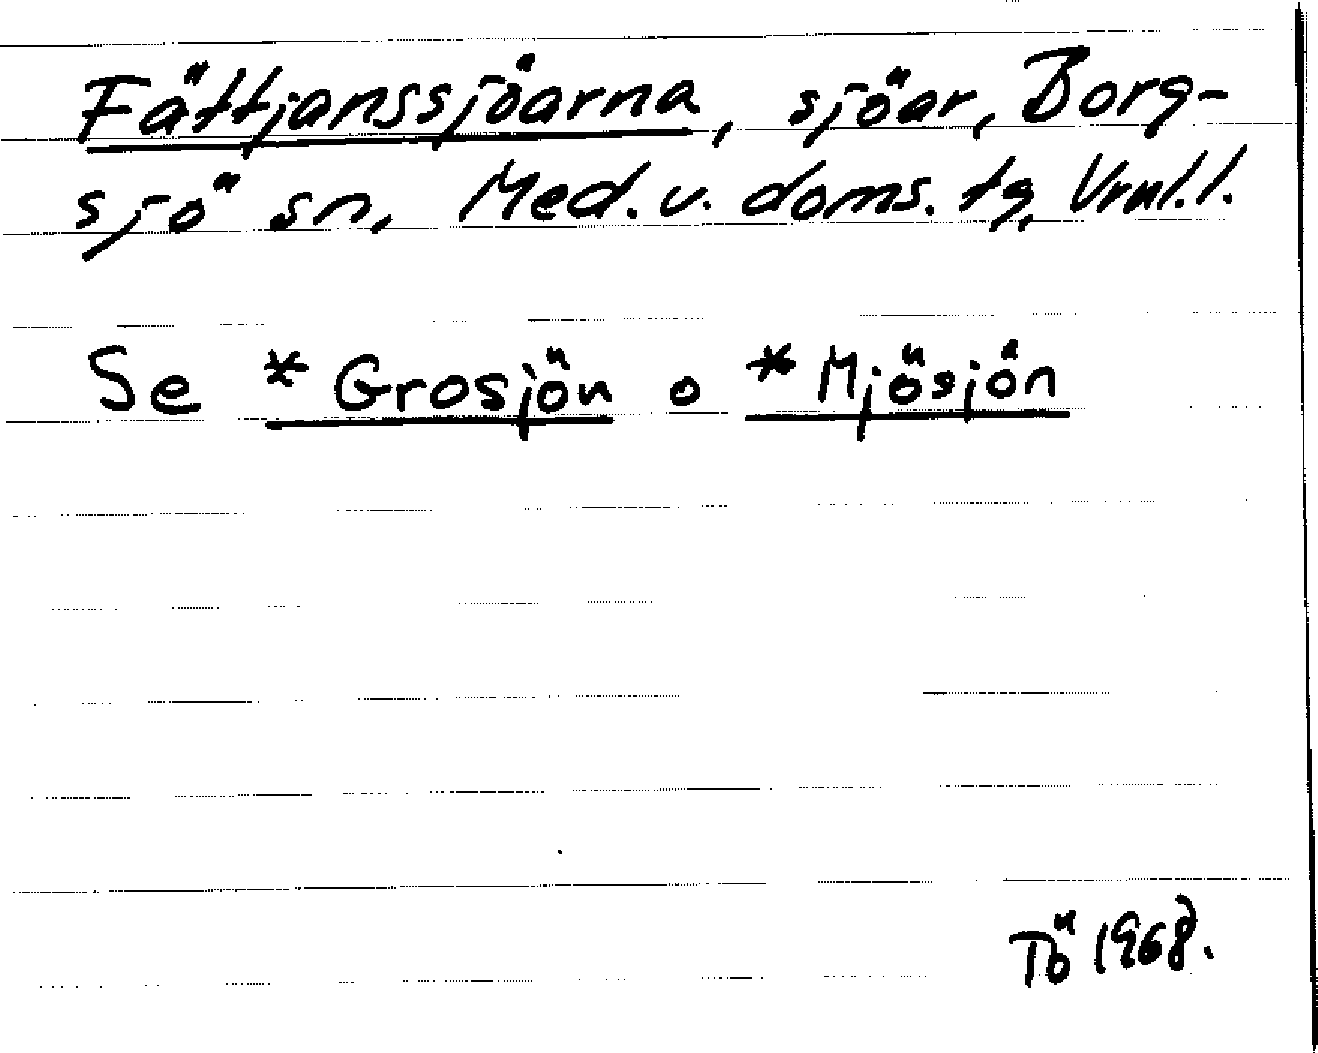 Fättjanssjöarna, sjöar, Borg-
sjö sn, Med. v. doms. tg, Vrnl. l.
Se *Grosjön o *Mjösjön
Tö 1968.